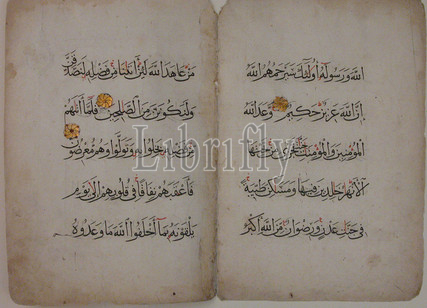 الله ورسوله أولئك سيرحمهم الله
إن الله عزيز حكيم وعد الله
المؤمنين والمؤمنات جنات تجري من تحتها
الأنهر خالدين فيها ومساكن طيبة
في جنات عدن ورضوان من الله أكبر
من عاهد الله لئن آتانا من فضله لنصدقن
ولنكونن من الصالحين فلما آتاهم
من فضله بخلوا به وتولوا وهم معرضون
فأعقبهم نفاقا في قلوبهم إلى يوم
يلقونه بما أخلفوا الله ما وعدوه
Librifly